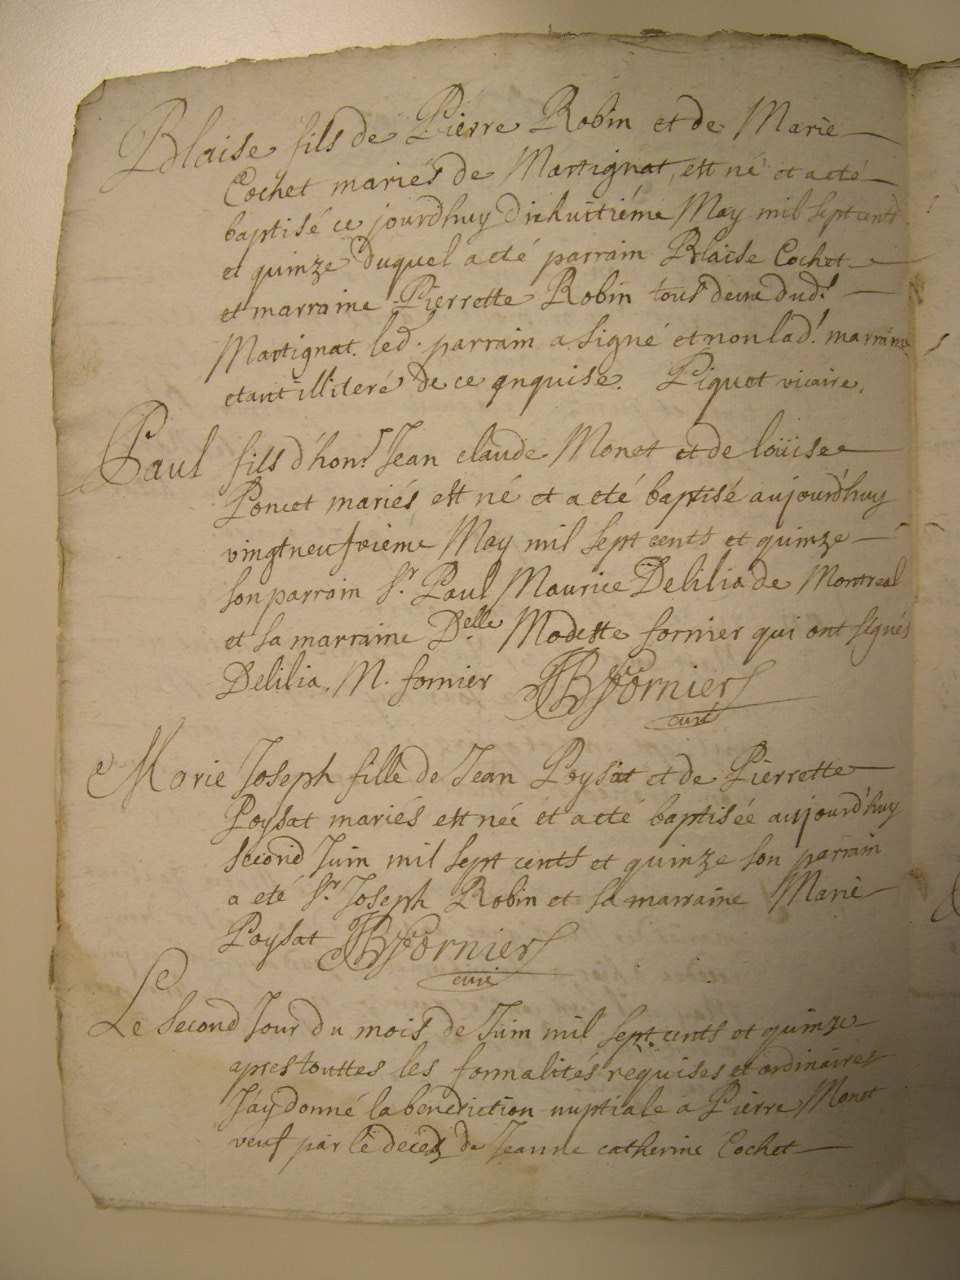 Blaise fils de Pierre Robin et de Marie
Cochet mariés de Martignat, est né et a eté
baptisé ce jourdhuy dixhuitiéme May mil sept cents
et quinze duquel a eté parrain Blaise Cochet
et marraine Pierrette Robin tous deux dud.
Martignat. led. parrain a signé et non lad. marraine
etant illiteré de ce enquise. Piquet vicaire.
Paul fils d'hon. Jean claude Monet et de loüise
Poncet mariés est né et a eté baptisé aujourd'huy
vingtneufvieme May mil sept cents et quinze
son parrain Sr. Paul Maurice Delilia de Montreal
et sa marraine Delle Modeste fornier qui ont signés
Delilia, M. fornier JB Fornier
curé
Marie Joseph fille de Jean Poysat et de Pierrette
Poysat mariés est née et a eté baptisée aujourd'huy
second Juin mil sept cents et quinze son parrain
a eté Sr. Joseph Robin et sa marraine Marie
Poysat JB Fornier
curé
Le second Jour du mois de Juin mil sept cents et quinze
apres touttes les formalités requises et ordinaires
J'ay donné la benediction nuptiale a Pierre Monet
veuf par le deceds de Jeanne catherine Cochet